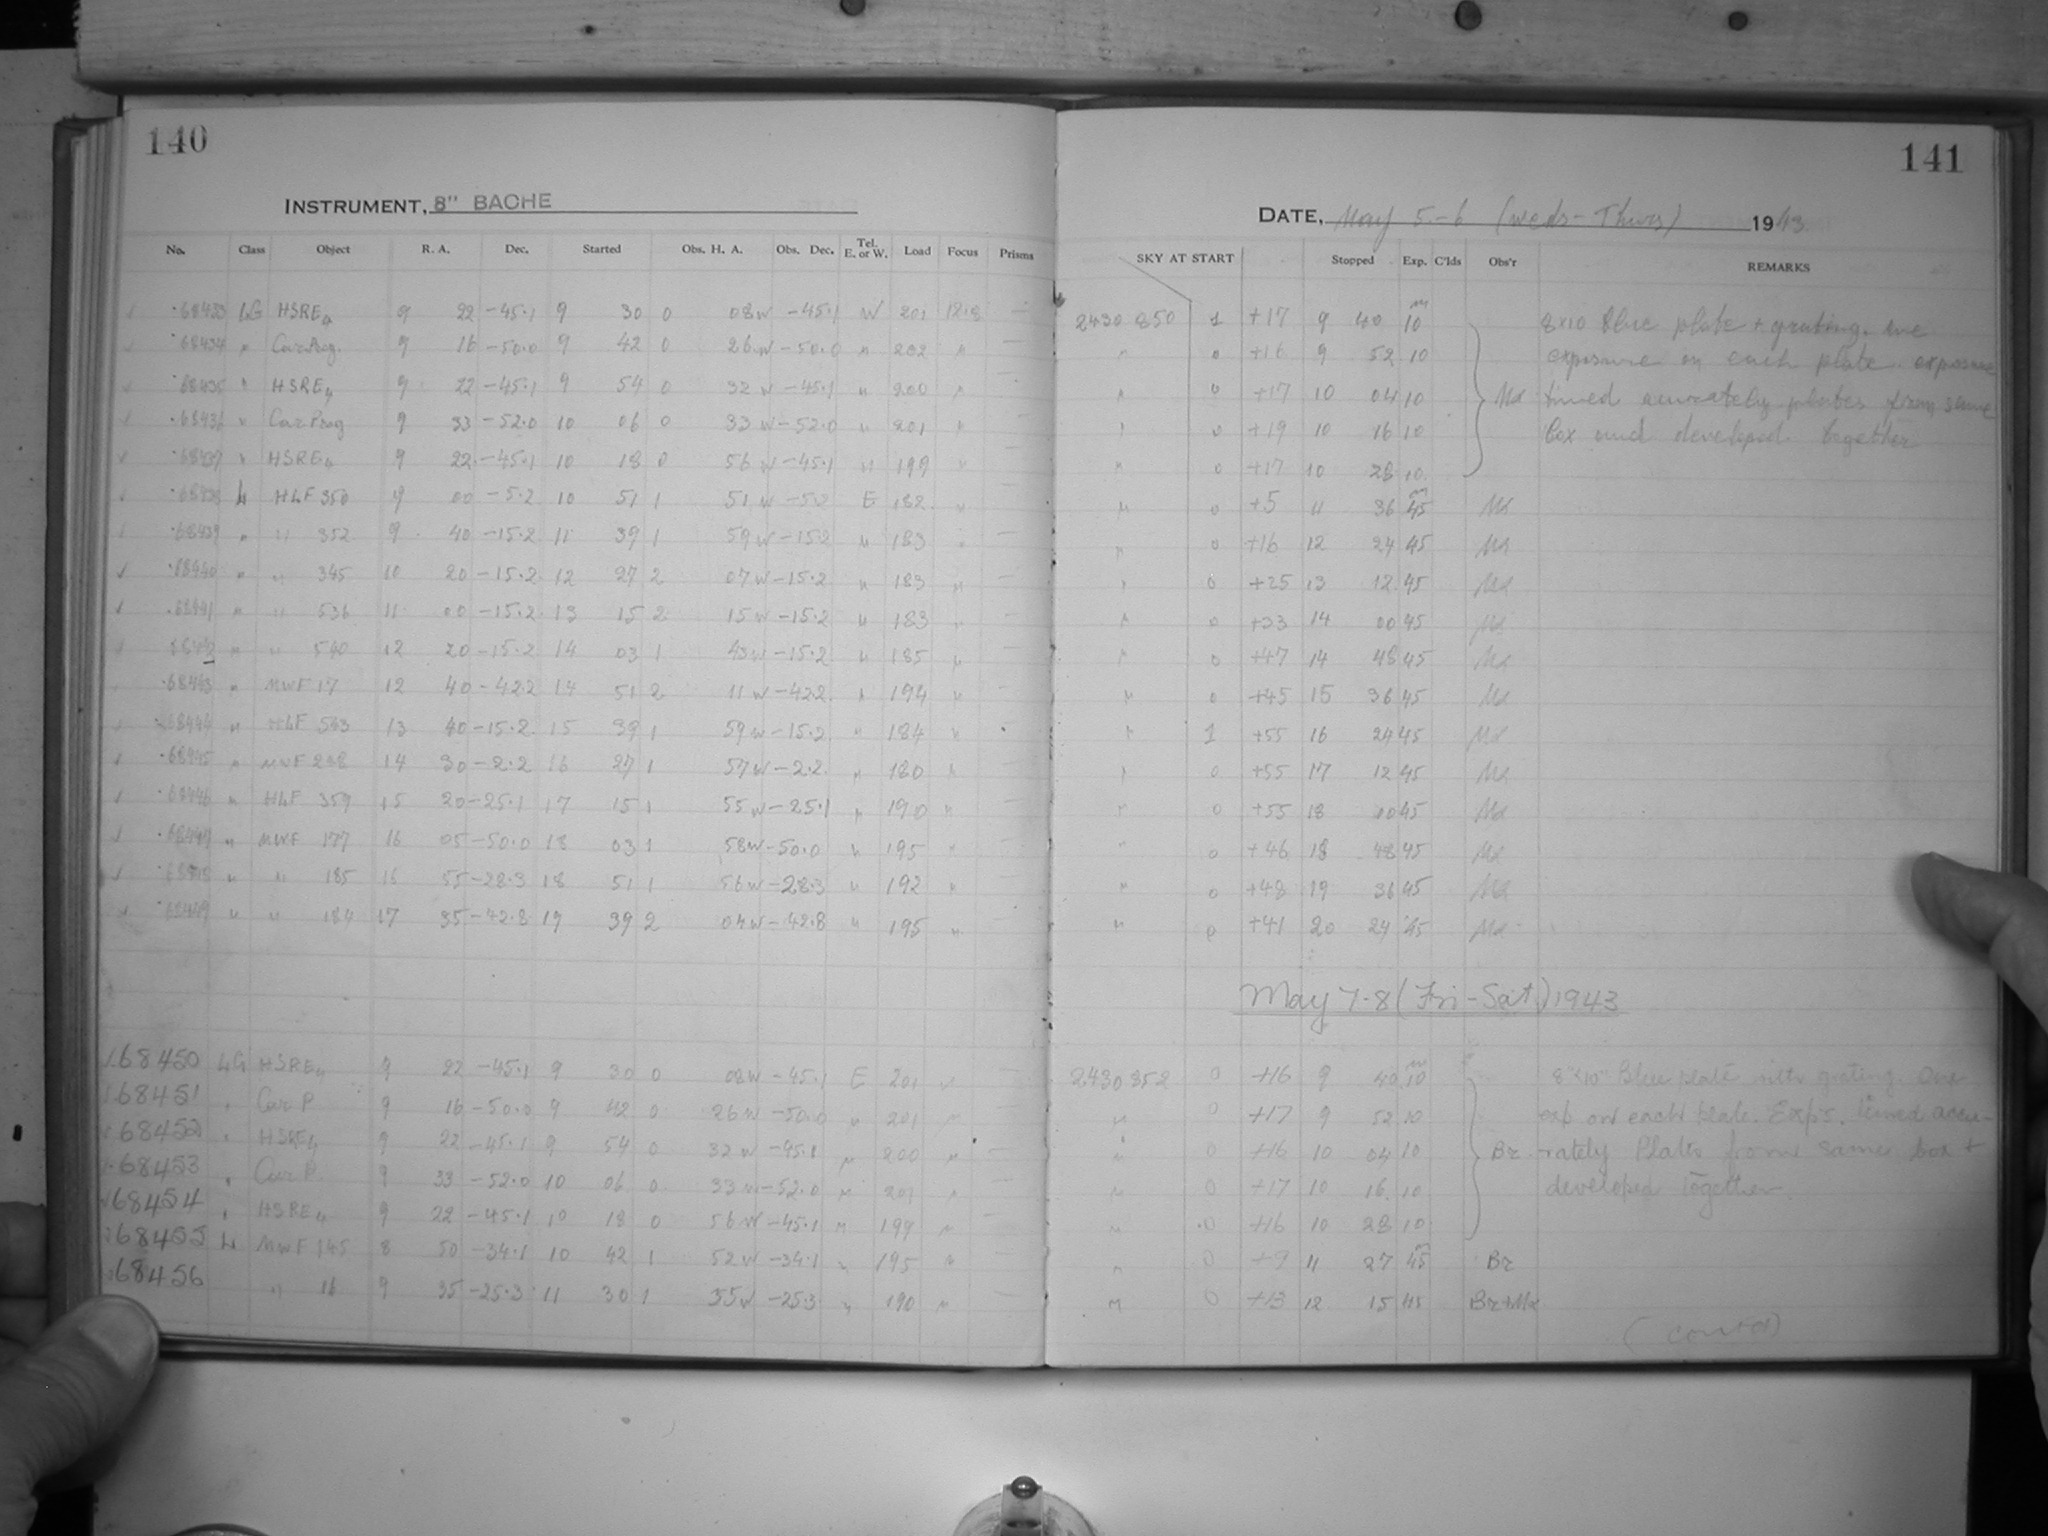 140
INSTRUMENT, 8" BACHE
No. Class Object R. A. Dec. Started Obs. H. A. Obs. Dec. Tel. E. or W. Load Focus Prisms
68433 LG HSRE4 9 22 -45.1 9 30 0 08W -45.1 W 201 12.8 —
68434 " Car Prog. 9 16 -50.0 9 42 0 26W -50.0 " 202 " —
68435 " HSRE4 9 22 -45.1 9 54 0 32W -45.1 " 200 " —
68436 " Car Prog 9 33 -52.0 10 06 0 33W -52.0 " 201 " —
68437 " HSRE4 9 22 -45.1 10 18 0 56W -45.1 " 199 " —
68438 L HLF 350 9 00 -5.2 10 51 1 51W -5.2 E 182 " —
68439 " " 352 9 40 -15.2 11 39 1 59W -15.2 " 183 " —
68440 " " 345 10 20 -15.2 12 27 2 07W -15.2 " 183 " —
68441 " " 536 11 00 -15.2 13 15 2 15W -15.2 " 183 " —
68442 " " 540 12 20 -15.2 14 03 1 43W -15.2 " 185 " —
68443 " MWF 17 12 40 -42.2 14 51 2 11W -42.2 " 194 " —
68444 " HLF 543 13 40 -15.2 15 39 1 59W -15.2 " 184 "
68445 " MWF 238 14 30 -2.2 16 27 1 57W -2.2 " 180 " —
68446 " HLF 359 15 20 -25.1 17 15 1 55W -25.1 " 190 " —
68447 " MWF 177 16 05 -50.0 18 03 1 58W -50.0 " 195 " —
68448 " " 185 16 55 -28.3 18 51 1 56W -28.3 " 192 " —
68449 " " 184 17 35 -42.8 19 39 2 04W -42.8 " 195 " —
68450 LG HSRE4 9 22 -45.1 9 30 0 08W -45.1 E 201 " —
68451 " Car P. 9 16 -50.0 9 42 0 26W -50.0 " 201 " —
68452 " HSRE4 9 22 -45.1 9 54 0 32W -45.1 " 200 " —
68453 " Car P. 9 33 -52.0 10 06 0 33W -52.0 " 201 " —
68454 " HSRE4 9 22 -45.1 10 18 0 56W -45.1 " 199 " —
68455 L MWF 145 8 50 -34.1 10 42 1 52W -34.1 " 195 " —
68456 " 16 9 35 -25.3 11 30 1 55W -25.3 " 190 " —
141
DATE, May 5-6 (Weds-Thurs) 1943
SKY AT START Stopped Exp. C'lds Obs'r REMARKS
2430 850 1 +17 9 40 10m 8x10 Blue plate + grating. One
" 0 +16 9 52 10 exposure on each plate. exposure
" 0 +17 10 04 10 Mx timed accurately plates from same
" 0 +19 10 16 10 box and developed together
" 0 +17 10 28 10
" 0 +5 11 36 45m Mx
" 0 +16 12 24 45 Mx
" 0 +25 13 12 45 Mx
" 0 +33 14 00 45 Mx
" 0 +47 14 48 45 Mx
" 0 +45 15 36 45 Mx
" 1 +55 16 24 45 Mx
" 0 +55 17 12 45 Mx
" 0 +55 18 00 45 Mx
" 0 +46 18 48 45 Mx
" 0 +48 19 36 45 Mx
" 0 +41 20 24 45 Mx
May 7-8 (Fri-Sat.) 1943
2430 852 0 +16 9 40 10m 8"x10" Blue plate with grating. One
" 0 +17 9 52 10 exp on each plate. Exp's. timed accu-
" 0 +16 10 04 10 Br rately Plates from same box +
" 0 +17 10 16 10 developed together.
" 0 +16 10 28 10
" 0 +9 11 27 45m Br
" 0 +13 12 15 45 Br+Mx
(contd)